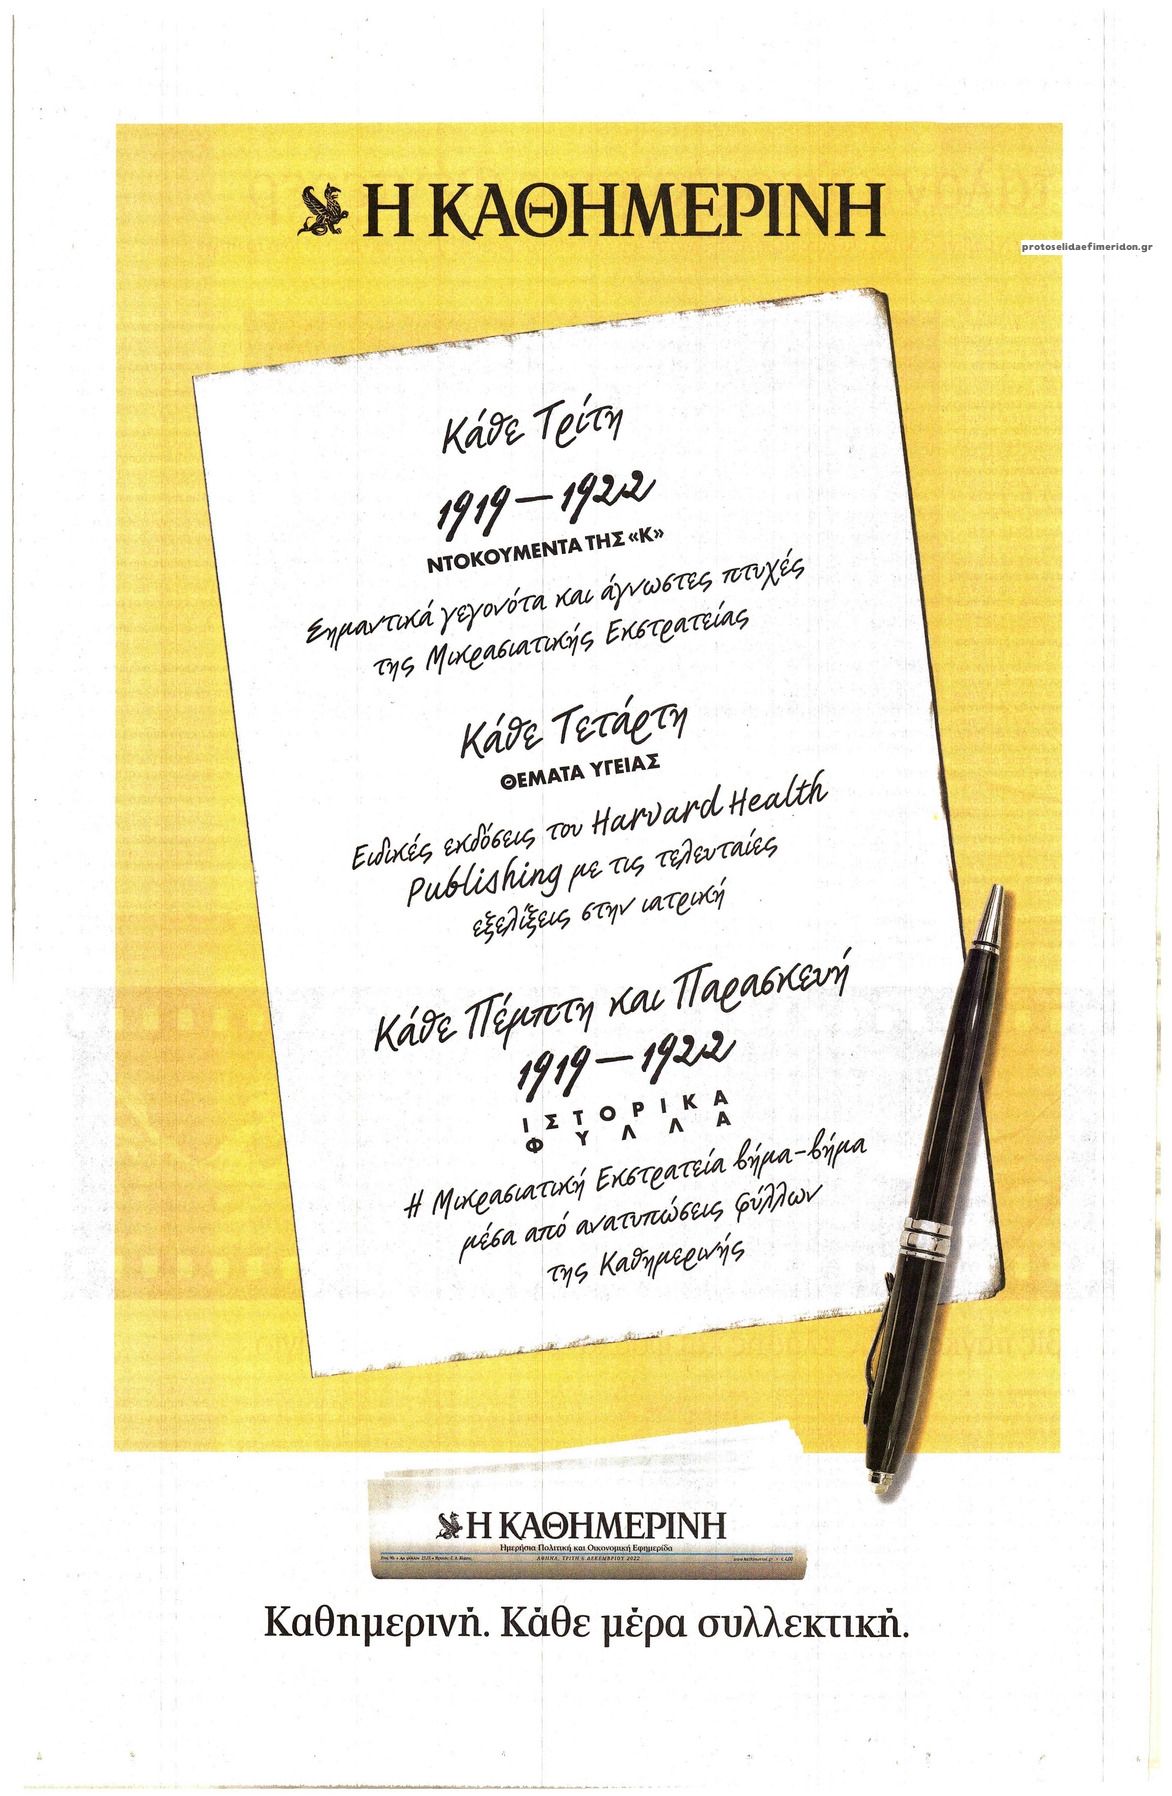 Η ΚΑΘΗΜΕΡΙΝΗ
protoselidaefimeridon.gr
Κάθε Τρίτη
1919 – 1922
ΝΤΟΚΟΥΜΕΝΤΑ ΤΗΣ «Κ»
Σημαντικά γεγονότα και άγνωστες πτυχές
της Μικρασιατικής Εκστρατείας
Κάθε Τετάρτη
ΘΕΜΑΤΑ ΥΓΕΙΑΣ
Ειδικές εκδόσεις του Harvard Health
Publishing με τις τελευταίες
εξελίξεις στην ιατρική
Κάθε Πέμπτη και Παρασκευή
1919 – 1922
ΙΣΤΟΡΙΚΑ
ΦΥΛΛΑ
Η Μικρασιατική Εκστρατεία βήμα-βήμα
μέσα από ανατυπώσεις φύλλων
της Καθημερινής
Η ΚΑΘΗΜΕΡΙΝΗ
Ημερήσια Πολιτική και Οικονομική Εφημερίδα
ΑΘΗΝΑ, ΤΡΙΤΗ 6 ΔΕΚΕΜΒΡΙΟΥ 2022
Καθημερινή. Κάθε μέρα συλλεκτική.